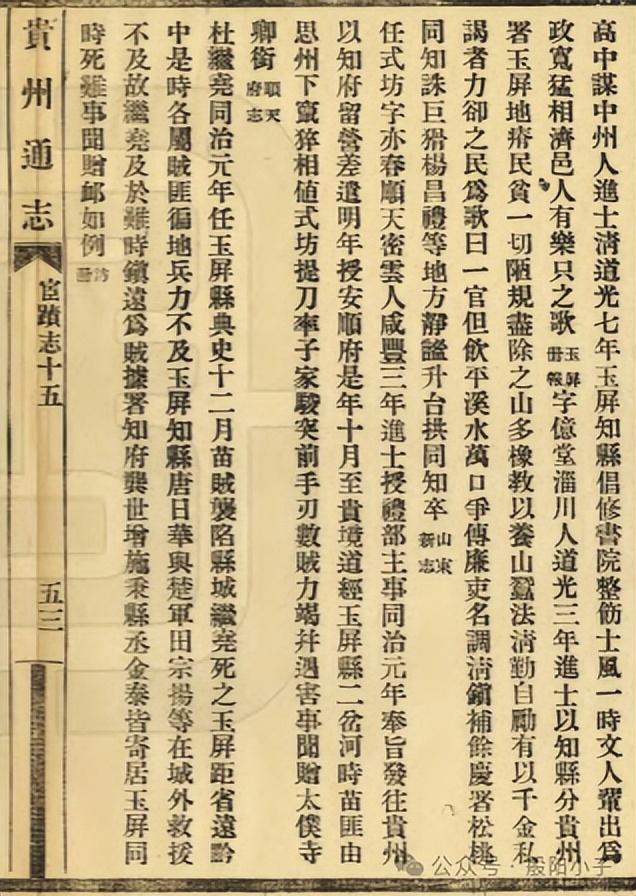 高中謀中州人進士淸道光七年玉屏知縣倡修書院整飭士風一時文人輩出爲
政寬猛相濟邑人有樂只之歌玉屏冊報字億堂淄川人道光三年進士以知縣分貴州
署玉屏地瘠民貧一切陋規盡除之山多橡敎以養山蠶法淸勤自勵有以千金私
謁者力卻之民爲歌曰一官但飮平溪水萬口爭傳廉吏名調淸鎭補餘慶署松桃
同知誅巨猾楊昌禮等地方靜謐升台拱同知卒山東新志
任式坊字亦春順天密雲人咸豐三年進士授禮部主事同治元年奉旨發往貴州
以知府留營差遣明年授安順府是年十月至貴境道經玉屏縣二岔河時苗匪由
思州下竄猝相値式坊提刀率子家駿突前手刃數賊力竭幷遇害事聞贈太僕寺
卿銜順天府志
杜繼堯同治元年任玉屏縣典史十二月苗賊襲陷縣城繼堯死之玉屏距省遠黔
中是時各屬賊匪徧地兵力不及玉屏知縣唐日華與楚軍田宗揚等在城外救援
不及故繼堯及於難時鎭遠爲賊據署知府龔世增施秉縣丞金泰皆寄居玉屏同
時死難事聞贈卹如例冊
貴州通志
宦蹟志十五
五三
公众号 般阳小子